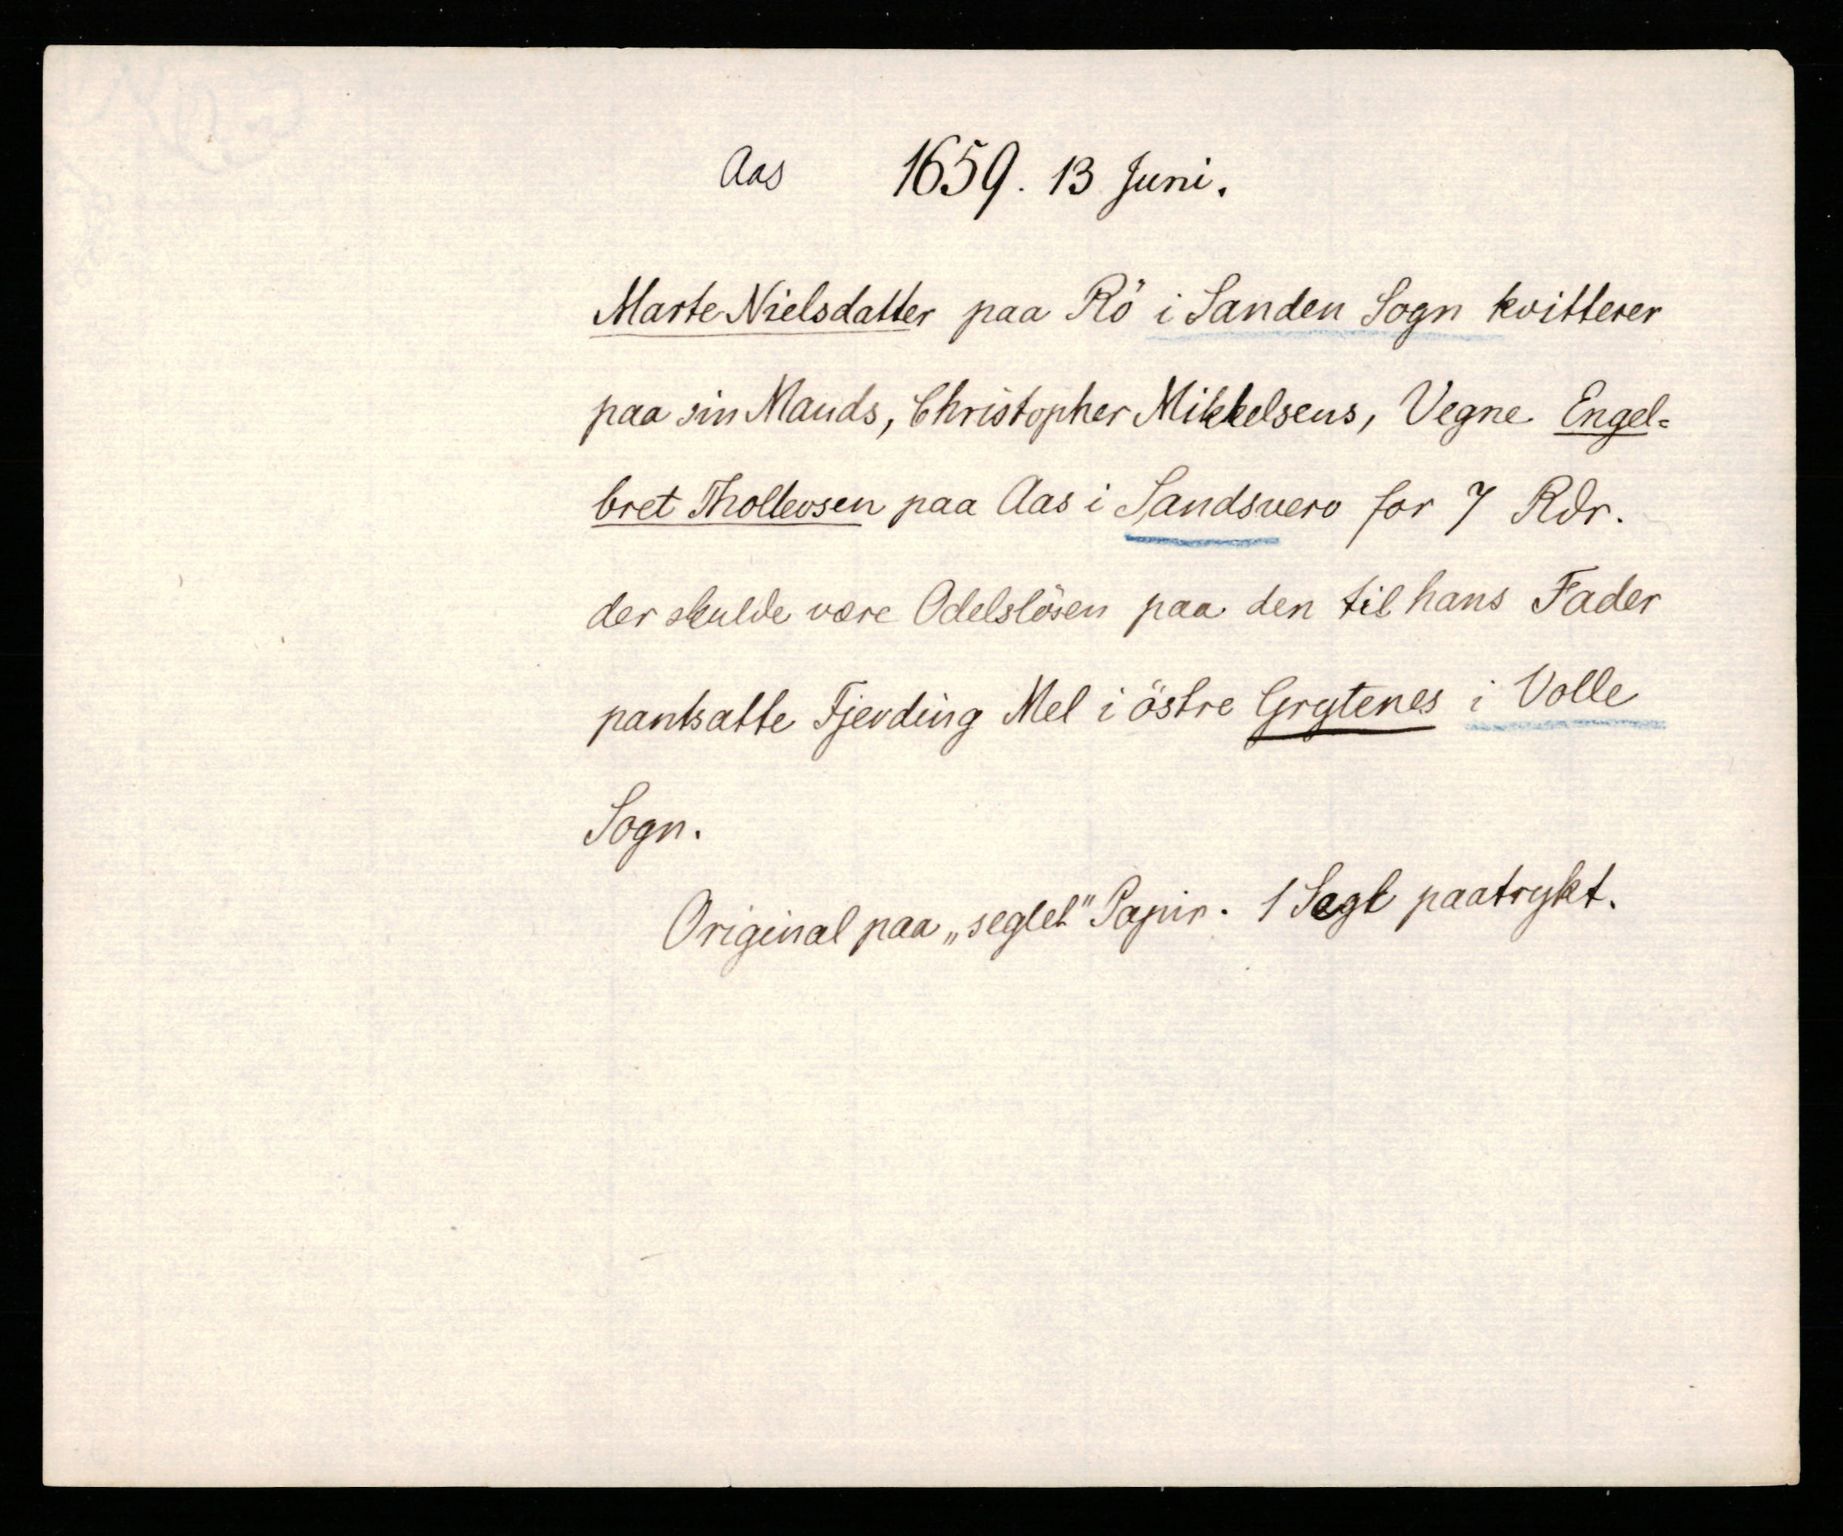 Aas 1659. 13 Juni.
Marte Nielsdatter paa Rö i Sanden Sogn kvitterer
paa sin Mands, Christopher Mikkelsens, Vegne Engel-
bret Thollevsen paa Aas i Sandsverv for 7 Rdr.
der skulde være Odelslösen paa den til hans Fader
pantsatte Fjerding Mel i östre Grytenes i Volle
Sogn.
Original paa „seglet" Papir. 1 Segl paatrykt.